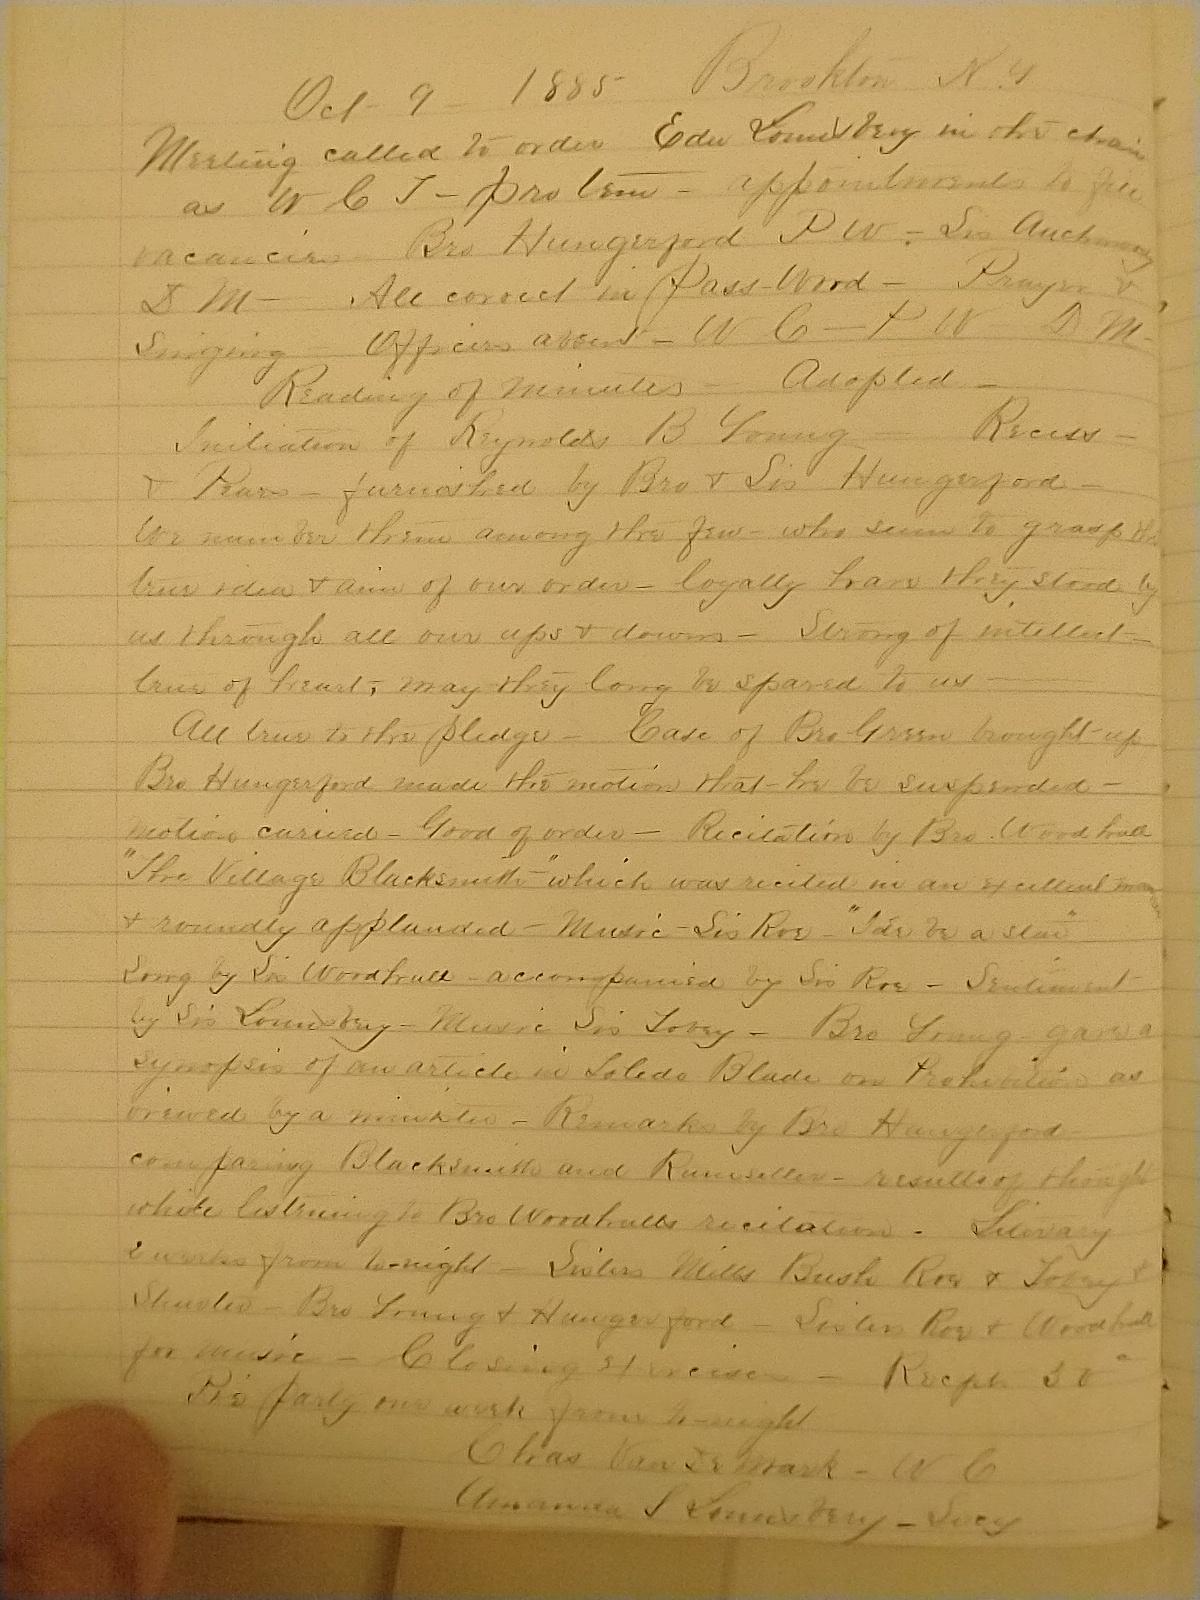 Oct - 9 - 1885 Brookton N.Y
Meeting called to order Edw Lounsbery in the chair
as W C T - pro tem - appointments to fill
vacancies - Bro Hungerford P W - Sis Auchmoody
D M - All correct in Pass-Word - Prayer &
Singing - Officers absent - W C - P W D M -
Reading of minutes - Adopted -
Initiation of Reynolds B Young - Recess -
& Pears - furnished by Bro & Sis Hungerford -
We number them among the few - who seem to grasp the
true idea & aim of our order - loyally have they stood by
us through all our ups & downs - Strong of intellect -
true of heart, may they long be spared to us -
All true to the pledge - Case of Bro Green brought up
Bro Hungerford made the motion that he be suspended -
motion carried - Good of order - Recitation by Bro. Woodhull
"The Village Blacksmith" which was recited in an excellent manner
& roundly applauded - Music - Sis Roe - "I'de be a star"
Song by Sis Woodhull - accompanied by Sis Roe - Sentiment
by Sis Lounsbery - Music Sis Tovey - Bro Young gave a
synopsis of an article in Toledo Blade on Prohibition as
viewed by a minister - Remarks by Bro Hungerford
comparing Blacksmith and Rumseller - results of thought
while listening to Bro Woodhulls recitation - Literary
2 weeks from to-night - Sisters Mills Bush Roe & Tovey &
- Bro Young & Hungerford - Sisters Roe & Woodhull
for music - Closing exercise - Recpts 30 c
party one week from to-night
Chas Van De Mark - W C
Amanda S Lounsbery - Secy